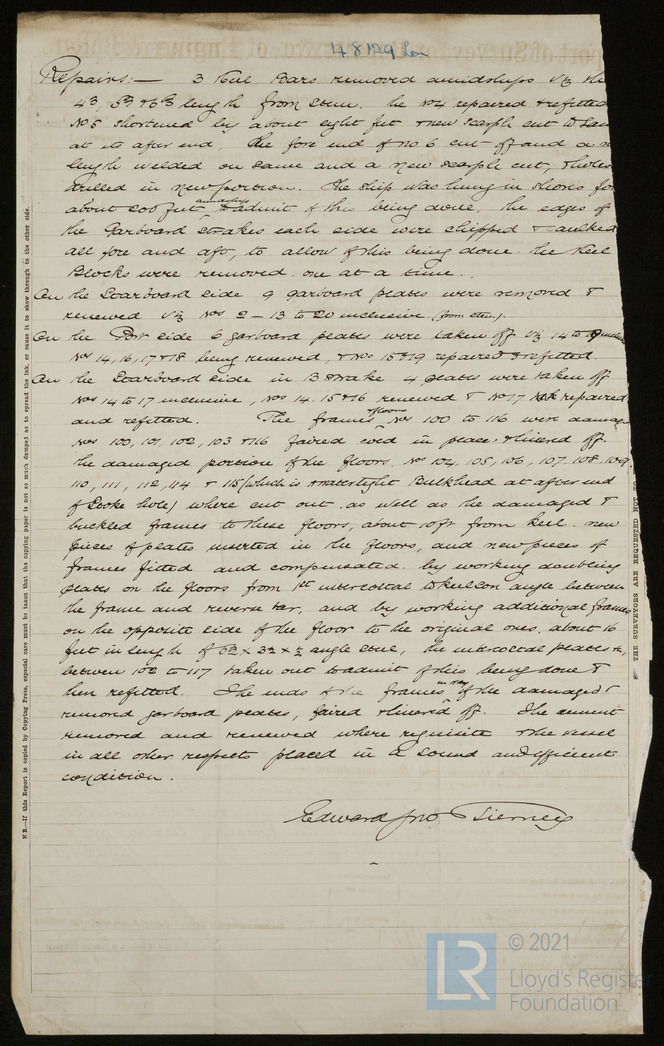 48129 Lon
Repairs:— 3 Keel Bars removed amidships viz the
4th, 5th & 6th length from stem. the No4 repaired & refitted
No 5 shortened by about eight feet & new scarph cut to same
at its after end, The fore end of no 6 cut off and a n
length welded on same and a new scarph cut, & holes
drilled in new portion. The ship was hung in shores for
about 200 feet, amidships to admit of this being done. the edges of
the Garboard strakes each side were chipped & caulked
all fore and aft, to allow of this being done the Keel
Blocks were removed one at a time.
On the Starboard side 9 garboard plates were removed &
renewed viz Nos 2 – 13 to 20 inclusive (from stem).
On the Port side 6 garboard plates were taken off viz 14 to 19
Nos 14, 16, 17 & 18 being renewed, & Nos 15 & 19 repaired & refitted.
On the Starboard side in B strake 4 plates were taken off
Nos 14 to 17 inclusive, Nos 14. 15 & 16 renewed & No 17 repaired
and refitted. The frames & floors Nos 100 to 116 were damag
Nos 100, 101, 102, 103 & 116 faired in place, & linered off
the damaged portion of the floors. No 104. 105, 106, 107. 108, 109
110, 111, 112, 114 & 115 (which is a watertight Bulkhead at after end
of Stoke hole) where cut out as well as the damaged &
buckled frames to these floors, about 10ft from Keel. new
pieces of plates inserted in the floors, and new pieces of
frames fitted and compensated by working doubling
plates on the floors from 1st intercostal to Keelson angle between
the frame and reverse bar, and by working additional frames
on the opposite side of the floor to the original ones. about 16
feet in length of angle steel, the intercostal plates
between 102 to 117 taken out to admit of this being done &
then refitted. The ends of the frames in way of the damaged &
removed garboard plates, faired & linered off. The cement
removed and renewed where requisite & the vessel
in all other respects placed in a sound and efficient
condition.
Edward Jno Tierney
N.B.—If this Report is copied by Copying Press, especial care must be taken that the copying paper is not so much damped as to spread the ink, or cause it to show through to the other side.
THE SURVEYORS ARE REQUESTED NOT TO
LR
© 2021
Lloyd's Register
Foundation